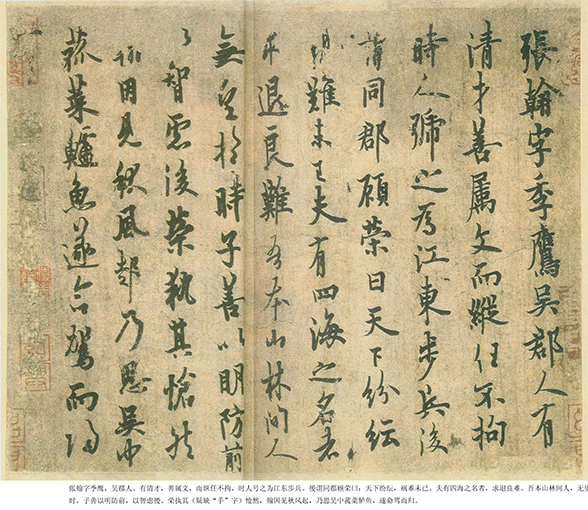 張翰字季鷹吳郡人有
清才善屬文而縱任不拘
時人號之為江東步兵後
謂同郡顧榮曰天下紛紜
禍難未已夫有四海之名者
求退良難吾本山林間人
無望於時子善以明防前
以智慮後榮執其愴然
翰因見秋風起乃思吳中
菰菜鱸魚遂命駕而歸
张翰字季鹰，吴郡人。有清才，善属文，而纵任不拘，时人号之为江东步兵。後谓同郡顾荣曰：天下纷纭，祸难未已。夫有四海之名者，求退良难。吾本山林间人，无
时。子善以明防前，以智虑後。荣执其（疑缺“手”字）怆然，翰因见秋风起，乃思吴中菰菜鲈鱼，遂命驾而归。